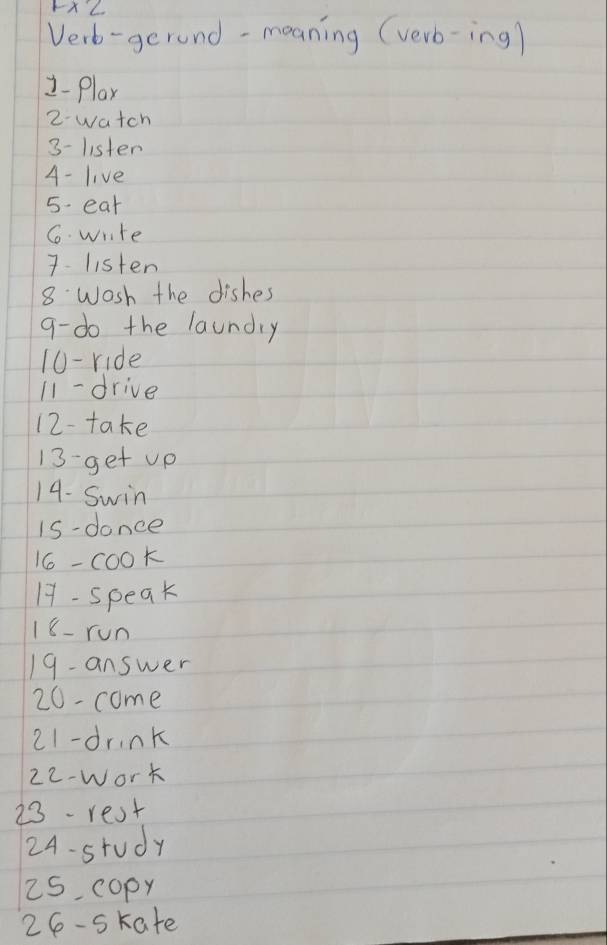 Ex 2
Verb-gerund - meaning (verb-ing)
1- Play
2- watch
3- listen
4- live
5- eat
6. write
7- listen
8. Wash the dishes
9- do the laundry
10- ride
11 - drive
12- take
13- get up
14- Swin
15- dance
16 - cook
17 - speak
18- run
19- answer
20- come
21- drink
22- work
23 - rest
24- study
25. copy
26- skate